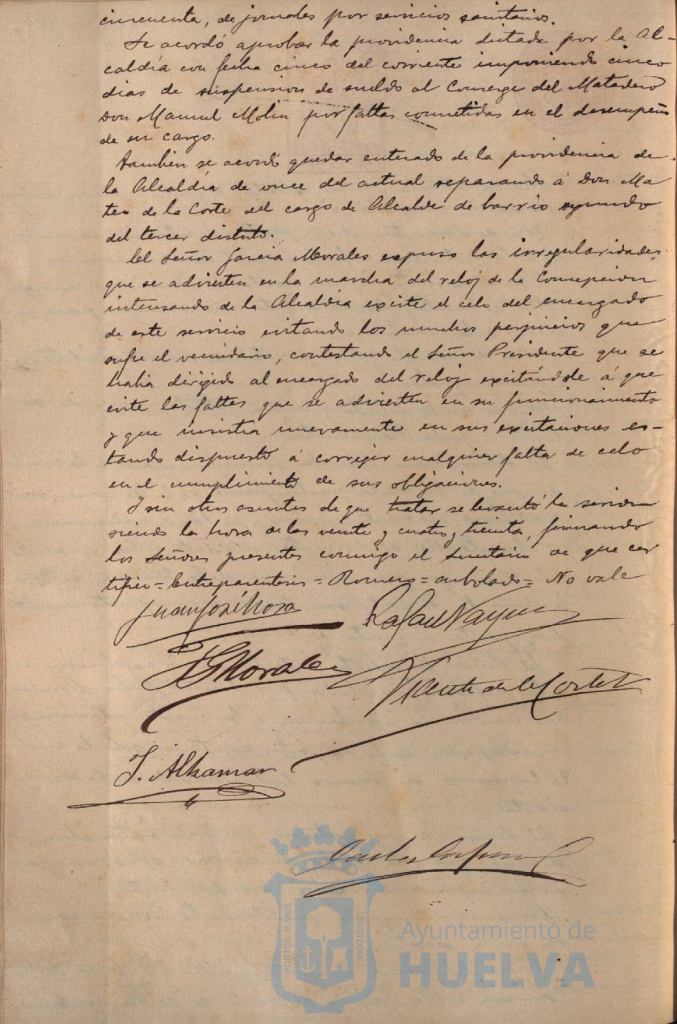 cincuenta, de jornales por servicios sanitarios.
Se acordó aprobar la providencia dictada por la Al-
caldía con fecha cinco del corriente imponiendo cinco
dias de suspension de sueldo al Conserge del Matadero
Don Manuel Molin por faltas cometidas en el desempeño
de su cargo.
Tambien se acordó quedar enterado de la providencia de
la Alcaldía de once del actual separando á Don Ma-
teo de la Corte del cargo de Alcalde de barrio segundo
del tercer distrito.
El Señor Garcia Morales expuso las irregularidades
que se advierten en la marcha del reloj de la Concepcion
interesando de la Alcaldía excite el celo del encargado
de este servicio evitando los muchos perjuicios que
sufre el vecindario, contestando el Señor Presidente que se
habia dirigido al encargado del reloj excitándole á que
evite las faltas que se advierten en su funcionamiento
y que insistia nuevamente en sus excitaciones es-
tando dispuesto á corregir cualquier falta de celo
en el cumplimiento de sus obligaciones.
Y sin otros asuntos de que tratar se levantó la sesion
siendo la hora de las veinte y cuatro y treinta, firmando
los Señores presentes conmigo el Secretario de que cer-
tifico = Entreparentesis = Romero = arbolado = No vale
Juan José Mora Rafael
Morales Vicente de la Corte
J. Alhamar
Ayuntamiento de
HUELVA
PORTUS MARIS
CUSTODIA